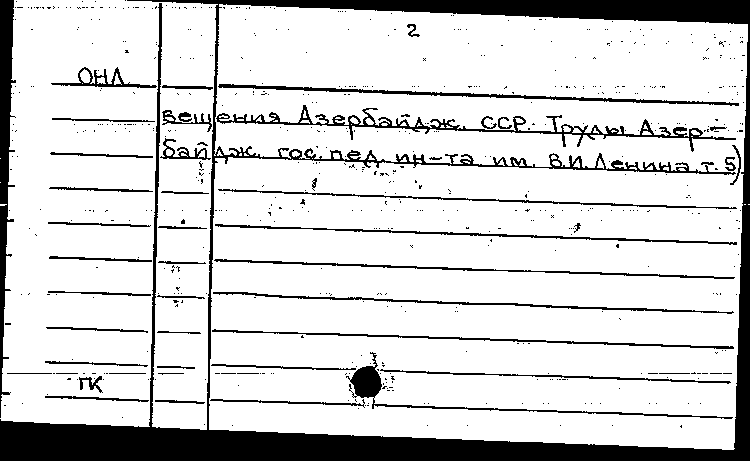 2
ОНЛ
вещения Азербайдж. ССР. Труды Азер-
байдж. гос. пед. ин-та им. В.И. Ленина, т. 5)
ГК